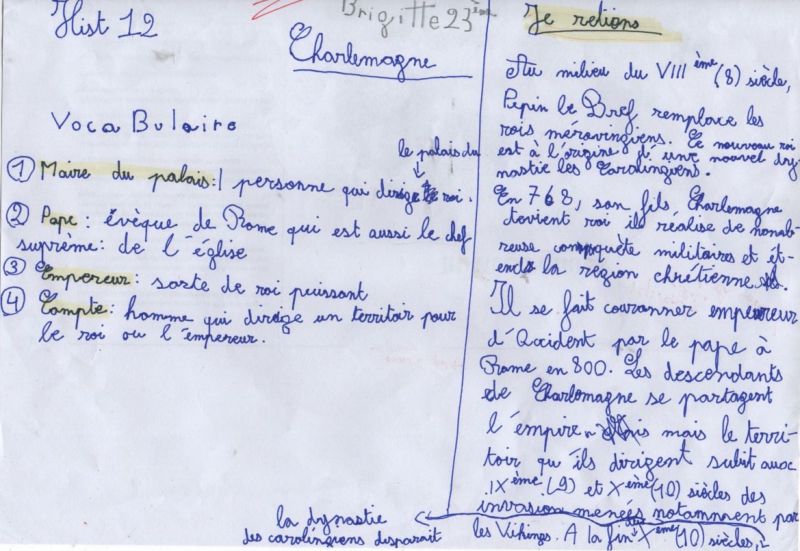 Hist 12
Brigitte 23ème
Charlemagne
VocaBulaire
le palais du
① Maire du palais: personne qui dirige roi.
② Pape: évèque de Rome qui est aussi le chef
suprême: de l'église
③ Empereur: sorte de roi puissant
④ Compte: homme qui dirige un territoir pour
le roi ou l'empereur.
Je retions
Au milieu du VIIIème (8) siècle,
Pepin le Bref remplace les
rois mérovingiens. Ce nouveau roi
est à l'origine d'une nouvel dy-
nastie les Carolingiens.
En 768, son fils Charlemagne
devient roi il réalise de nomb-
reuse conquête militaires et ét-
ends la région chrétienne.
Il se fait couranner empereur
d'Occident par le pape à
Rome en 800. Les descendants
de Charlomagne se partagent
l'empire mais le terri-
toir qu'ils dirigent subit aux
IXème (9) et Xème (10) siècles des
invasion menées notamment par
les Vikings. A la fin du Xème (10) siècles,
la dynastie
des carolingiens disparait